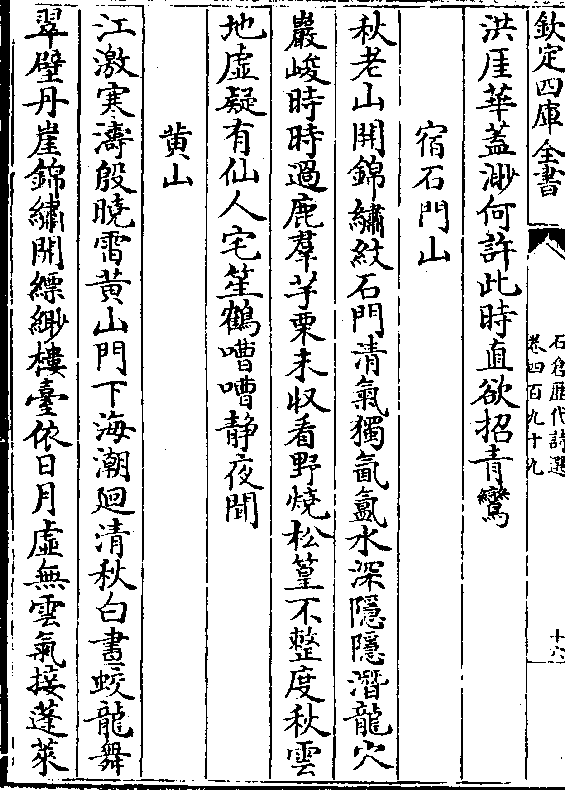 欽定四庫全書
石倉歷代詩選
卷四百九十九
十六
洪厓華蓋渺何許此時直欲招青鸞
宿石門山
秋老山開錦繡紋石門清氣獨氤氲水深隱隱潛龍穴
巖峻時時過鹿羣芋栗未収看野燒松篁不整度秋雲
地虛疑有仙人宅笙鶴嘈嘈静夜聞
黄山
江激寒濤殷曉雷黄山門下海潮廻清秋白晝蛟龍舞
翠壁丹崖錦繡開縹緲樓臺依日月虛無雲氣接蓬萊